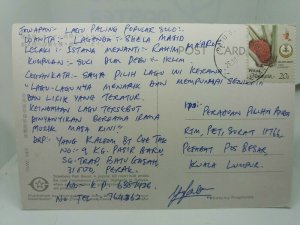 JAWAPAN - LAGU PALING POPULAR 2020:
WANITA - LAGENDA : SHEILA MAJID
LELAKI : ISTANA MENANTI - RAHIM MAAROF
POST CARD
KUMPULAN : SUCI DLM DEBU : IKLIM
CEREHKATA : SAYA PILIH LAGU INI KERANA
"LAGU-LAGUNYA MENARIK DAN MEMPUNYAI SENIKATA
DAN LIRIK YANG TERATUR.
KEINDAHAN LAGU TERSEBUT
DINYANYIKAN BERSAMA IRAMA
MUZIK MASA KINI"
DRP : YONG KALSOM BT CHE TAK
NO: 9 KG. PASIR BARU,
SG. TRAP, BATU GAJAH
31000, PERAK.
NO. K.P.
NO TEL
20c
PERADUAN PILIHAN ANDA
RTM, PETI SURAT 11766
PEJABAT POS BESAR
KUALA LUMPUR